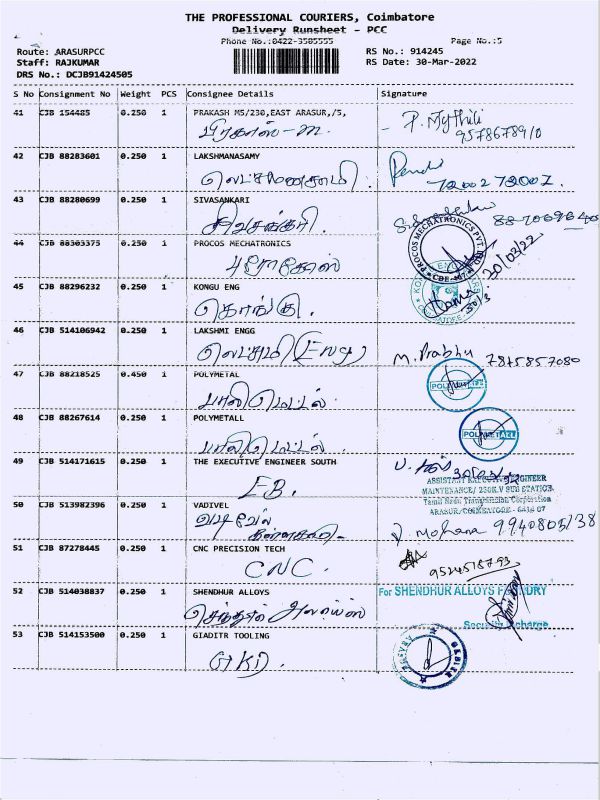 THE PROFESSIONAL COURIERS, Coimbatore
Delivery Runsheet - PCC
Phone No.:0422-3505555
Page No.:5
Route: ARASURPCC
RS No.: 914245
Staff: RAJKUMAR
RS Date: 30-Mar-2022
DRS No.: DCJB91424505
S No Consignment No Weight PCS Consignee Details Signature
41 CJB 154485 0.250 1 PRAKASH M5/230,EAST ARASUR,/5,
பிரகாஸ்-m.
P. Mythili
9578678910
42 CJB 88283601 0.250 1 LAKSHMANASAMY
லெட்சுமணசாமி
7200272007.
43 CJB 88280699 0.250 1 SIVASANKARI
சிவசங்கரி.
44 CJB 88303375 0.250 1 PROCOS MECHATRONICS
புரோகோஸ்
PROCOS MECHATRONICS PVT. LTD
CBE-407
30/03/22
45 CJB 88296232 0.250 1 KONGU ENG
கொங்கு.
30/3
46 CJB 514106942 0.250 1 LAKSHMI ENGG
லெட்சுமி (Eng)
M. Prabhu 7845857080
47 CJB 88218525 0.450 1 POLYMETAL
பாலிமெட்டல்.
48 CJB 88267614 0.250 1 POLYMETALL
பாலிமெட்டல்.
POLYMETALL
49 CJB 514171615 0.250 1 THE EXECUTIVE ENGINEER SOUTH
EB.
ASSISTANT EXECUTIVE ENGINEER
MAINTENANCE/ 230K.V SUB STATION
Tamil Nadu Transmission Corporation
ARASUR/COIMBATORE - 641 407
50 CJB 513982396 0.250 1 VADIVEL
வடிவேல்
mohana 9940805138
51 CJB 87278445 0.250 1 CNC PRECISION TECH
CNC.
9524518793
52 CJB 514038837 0.250 1 SHENDHUR ALLOYS
செந்தூர் அலாய்ஸ்
For SHENDHUR ALLOYS FOUNDRY
Security Incharge
53 CJB 514153500 0.250 1 GIADITR TOOLING
GTKD.